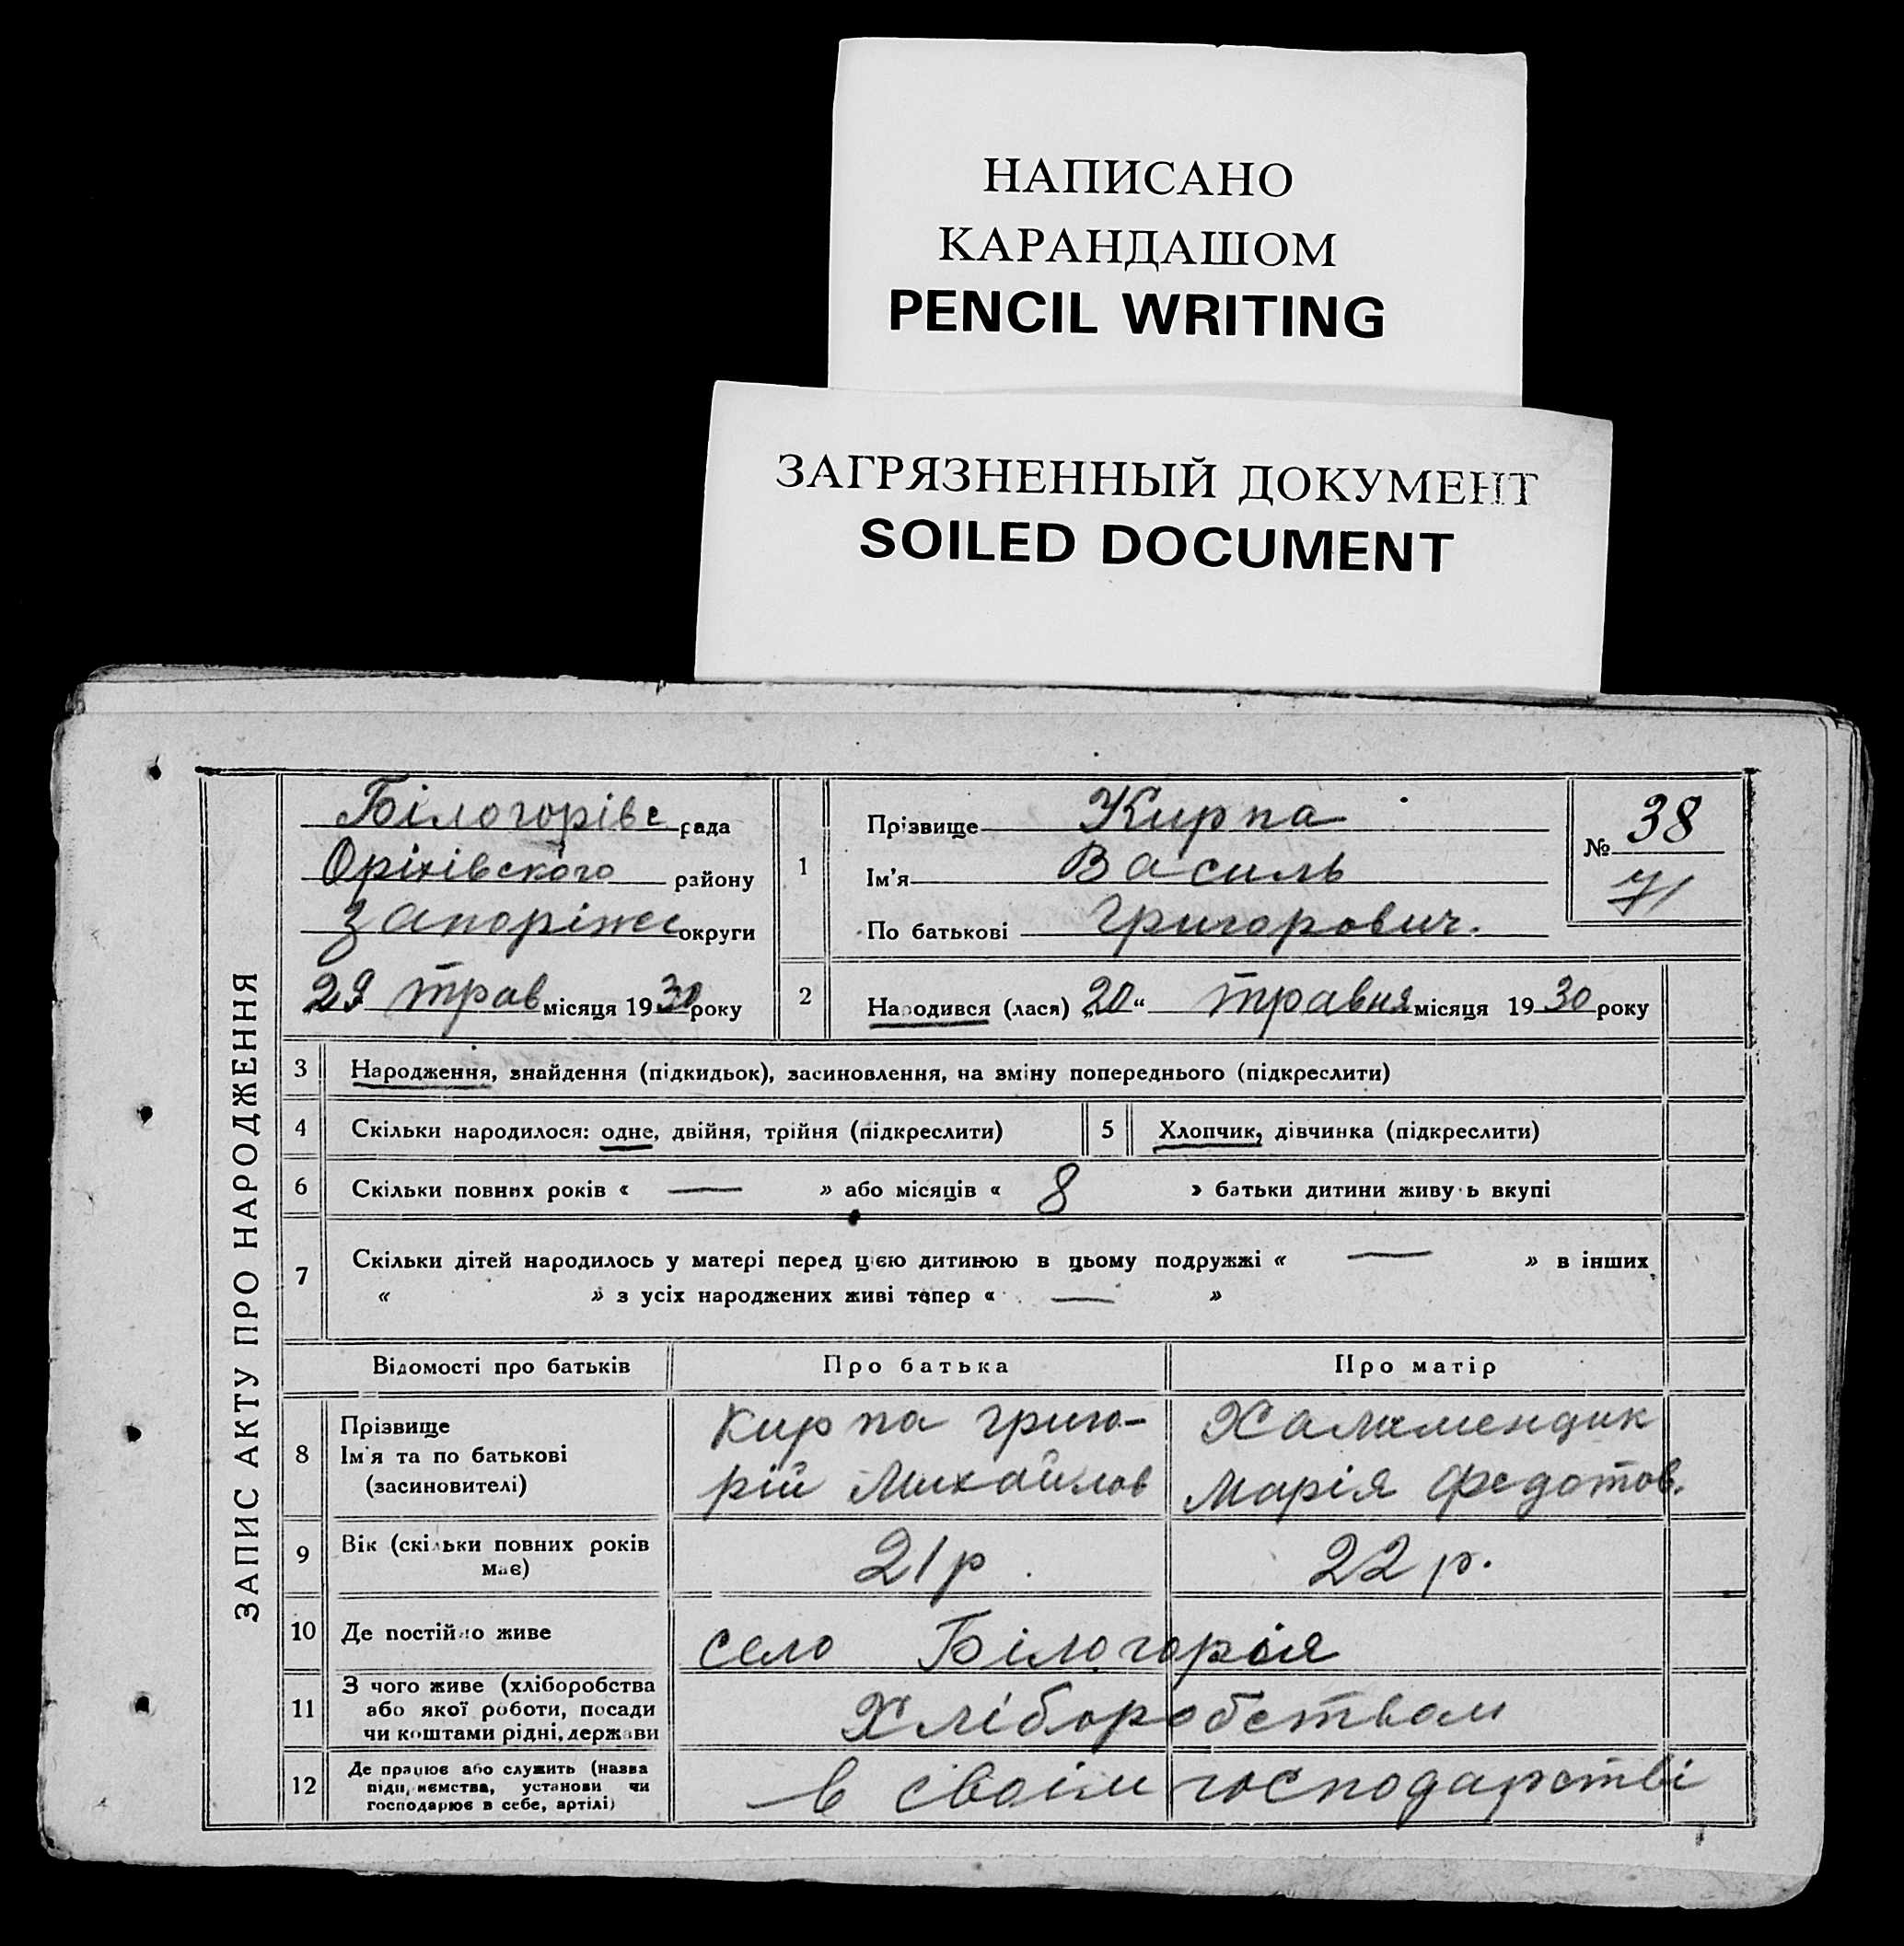 НАПИСАНО
КАРАНДАШОМ
PENCIL WRITING
ЗАГРЯЗНЕННЫЙ ДОКУМЕНТ
SOILED DOCUMENT
ЗАПИС АКТУ ПРО НАРОДЖЕННЯ
Білогорівс рада
Оріхівского району
Запоріжс округи
29 трав місяця 1930 року
1
Прізвище Кирпа
Ім'я Василь
По батькові Григорович.
№ 38
71
2 Народився (лася) „20“ травня місяця 1930 року
3 Народження, знайдення (підкидьок), засиновлення, на зміну попереднього (підкреслити)
4 Скільки народилося: одне, двійня, трійня (підкреслити) 5 Хлопчик, дівчинка (підкреслити)
6 Скільки повних років « — » або місяців « 8 » батьки дитини живуть вкупі
7 Скільки дітей народилось у матері перед цією дитиною в цьому подружжі « — » в інших
« » з усіх народжених живі тепер « — »
Відомості про батьків Про батька Про матір
8 Прізвище
Ім'я та по батькові
(засиновителі)
Кирпа Григо-
рій Михайлов
Халименцик
Марія Федотов.
9 Вік (скільки повних років
має)
21 р 22 р.
10 Де постійно живе село Білогорія
11 З чого живе (хліборобства
або якої роботи, посади
чи коштами рідні, держави
Хліборобством
12 Де працює або служить (назва
підприємства, установи чи
господарює в себе, артілі)
в своім господарстві